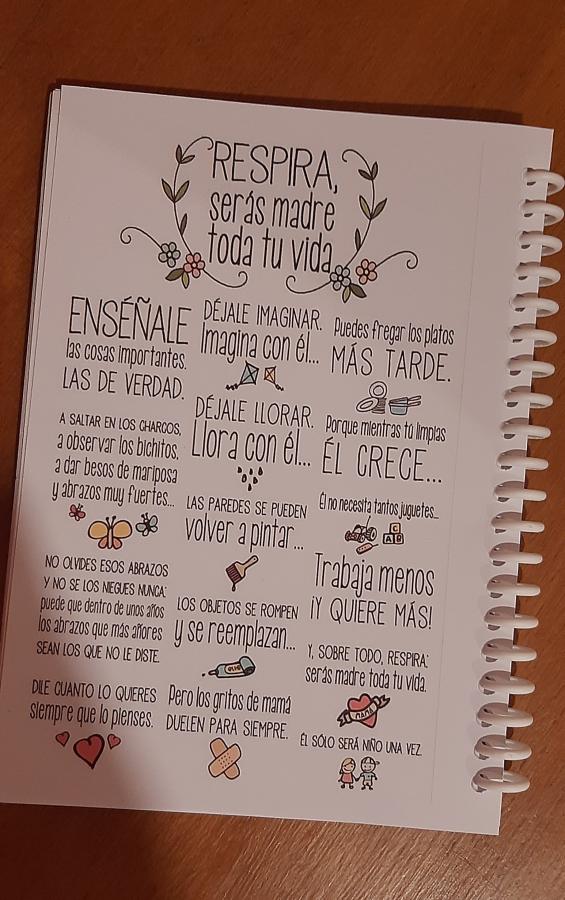 RESPIRA,
serás madre
toda tu vida
ENSÉÑALE
las cosas importantes.
LAS DE VERDAD.
A SALTAR EN LOS CHARCOS,
a observar los bichitos,
a dar besos de mariposa
y abrazos muy fuertes...
NO OLVIDES ESOS ABRAZOS
Y NO SE LOS NIEGUES NUNCA:
puede que dentro de unos años
los abrazos que más añores
SEAN LOS QUE NO LE DISTE.
DILE CUANTO LO QUIERES
siempre que lo pienses.
DÉJALE IMAGINAR.
Imagina con él...
DÉJALE LLORAR.
Llora con él...
LAS PAREDES SE PUEDEN
volver a pintar...
LOS OBJETOS SE ROMPEN
y se reemplazan...
Pero los gritos de mamá
DUELEN PARA SIEMPRE.
Puedes fregar los platos
MÁS TARDE.
Porque mientras tú limpias
ÉL CRECE...
Él no necesita tantos juguetes...
A B
Trabaja menos
¡Y QUIERE MÁS!
Y, SOBRE TODO, RESPIRA:
serás madre toda tu vida.
MAMÁ
ÉL SÓLO SERÁ NIÑO UNA VEZ.